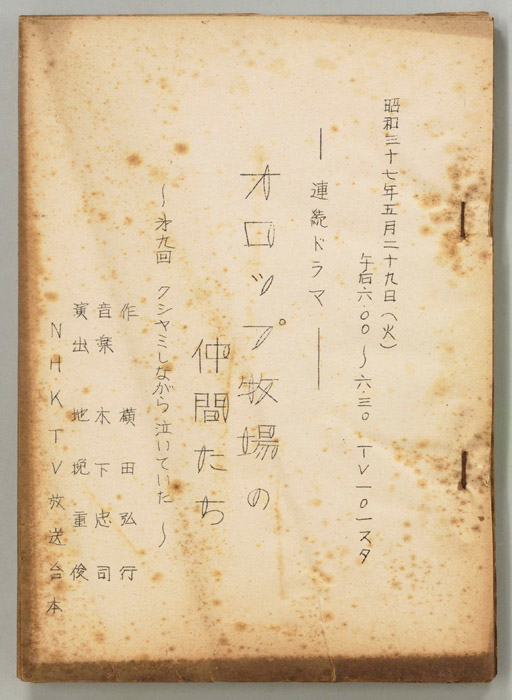 昭和三十七年五月二十九日(火)
午后六.00 〜 六.三0 TV一〇一スタ
— 連続ドラマ —
オロップ牧場の
仲間たち
〜 第九回 クシャミしながら泣いていた 〜
作 横田弘行
音楽 木下忠司
演出 地挽重俊
NHKTV放送台本